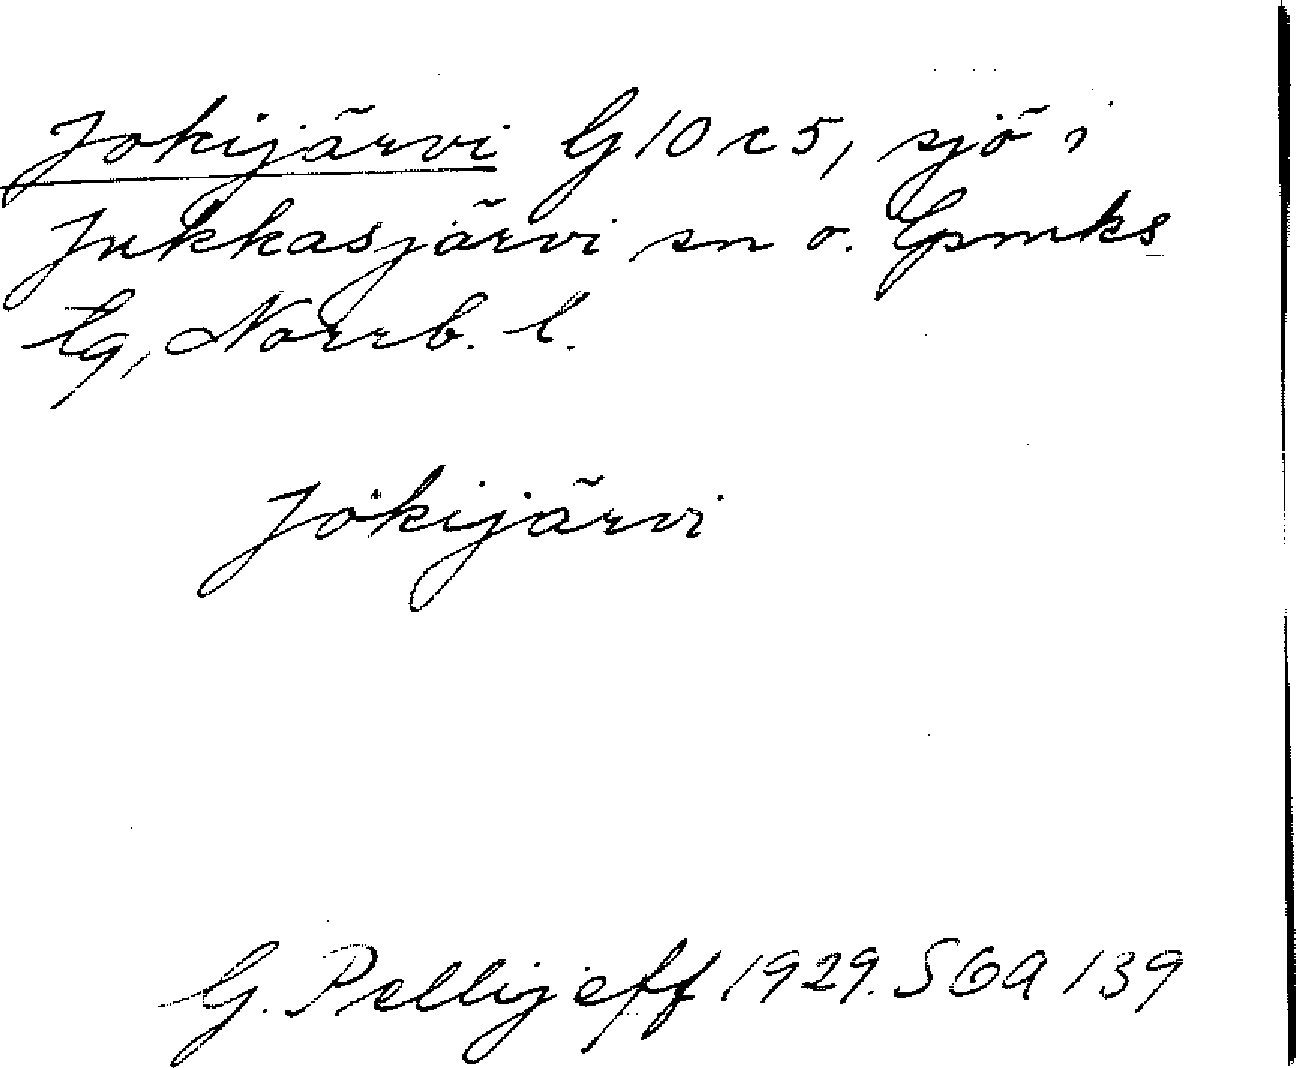 Jokijärvi G10c5, sjö i
Jukkasjärvi sn o. lpmks
tg, Norrb. l.
Jokijärvi
G. Pellijeff 1929. SGA 139